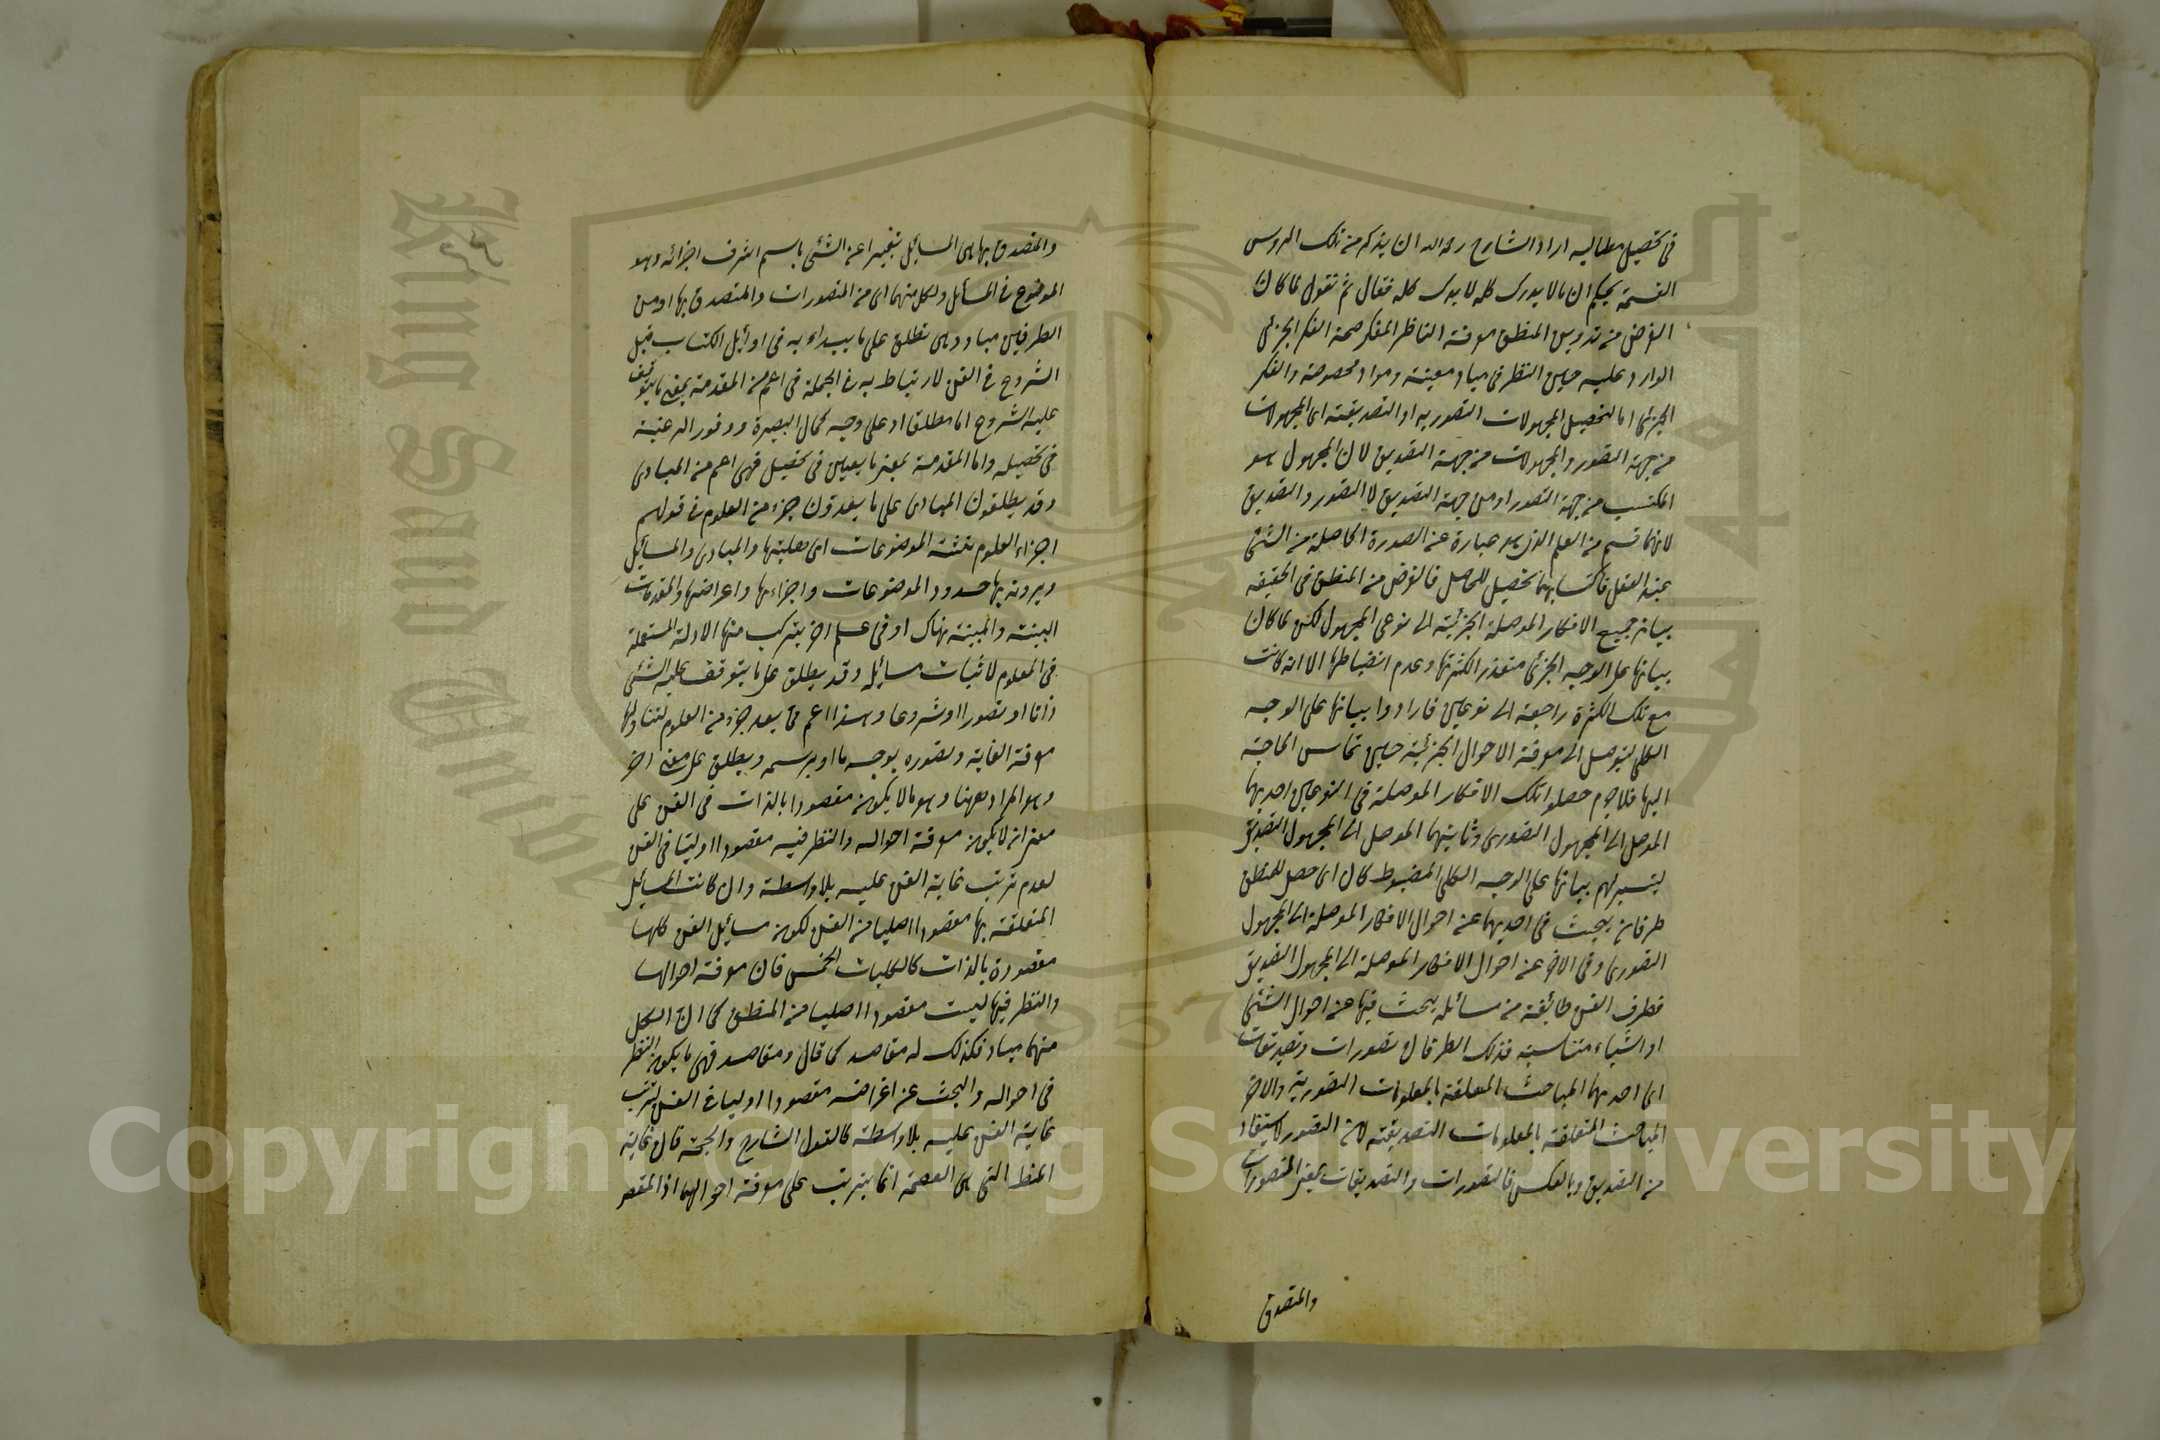 في تحصيل مطالبه اراد الشارح رحمه الله ان يذكر من تلك الروس
القسمة بحكم ان ما لا يدرك كله لا يترك كله فقال ثم نقول لما كان
الغرض من تدوين المنطق معرفة الناظر المفكر صحة الفكر الجزئي
الوارد عليه حين النظر في مباد معينة ومواد مخصوصة والفكر
الجزئي اما لتحصيل المجهولات التصوريه او التصديقية اي المجهولات
من جهة التصور والمجهولات من جهة التصديق لان المجهول هو
المكتسب من جهة التصور او من جهة التصديق لا التصور والتصديق
لانهما قسم من العلم الذي هو عبارة عن الصورة الحاصلة من الشئ
عند العقل فاكتسابهما تحصيل للحاصل فالغرض من المنطق في الحقيقة
بيان جميع الافكار الموصلة الجزئية الى نوعي المجهول لكن لما كان
بيانها على الوجه الجزئي متعذرا لكثرتها وعدم انضباطها الا انه كانت
مع تلك الكثرة راجعة الى نوعين فارادوا بيانها على الوجه
الكلي ليتوصل الى معرفة الاحوال الجزئية حين تماس الحاجة
اليها فلا جرم حصلوا تلك الافكار الموصلة في النوعين احديهما
الموصل الى المجهول التصوري وثانيتهما الموصل الى المجهول التصديقي
ليتيسر لهم بيانها على الوجه الكلي المضبوط كان اي حصل للمنطق
طرفان يبحث في احديهما عن احوال الافكار الموصلة الى المجهول
التصوري وفي الاخر عن احوال الافكار الموصلة الى المجهول التصديقي
فطرف الفن طائفة من مسائله يبحث فيها عن احوال الشئ
او اشياء متناسبة فذلك الطرفان تصورات وتصديقات
اي احديهما المباحث المتعلقة بالمعلومات التصورية والاخر
المباحث المتعلقة بالمعلومات التصديقية لان التصور لا يستفاد
من التصديق وبالعكس فالتصورات والتصديقات بمعنى المتصورات
والمتصدق
والمتصدق بها هي المسائل تعبيرا عن الشئ باسم اشرف اجزائه وهو
الموضوع في المسائل ولكل منهما اي من المتصورات والمتصدق بها او من
الطرفين مباد وهي تطلق على ما يبداء به في اوائل الكتاب قبل
الشروع في الفن لارتباط به في الجملة فهي اعم من المقدمة بمعنى ما يتوقف
عليه الشروع اما مطلقا او على وجه كمال البصيرة ووفور الرغبة
في تحصيله واما المقدمة بمعنى ما يعين في تحصيل فهي اعم من المبادي
وقد يطلقون المبادي على ما يعدون جزء من العلوم في قولهم
اجزاء العلوم ثلثة الموضوعات اي هليتها والمبادي والمسائل
ويريدون بها حدود الموضوعات واجزاءها واعراضها والمقدمات
البينة والمبينة هناك او في علم اخر يتركب منها الادلة المستعملة
في العلوم لاثبات مسائله وقد يطلق على ما يتوقف عليه الشئ
ذاتا او تصورا او شروعا وهذا اعم مما يعد جزء من العلوم لتناولها
معرفة الغاية وتصوره بوجه ما او برسمه ويطلق على معنى اخر
وهو المراد ههنا وهو ما لا يكون مقصودا بالذات في الفن على
معنى انه لا يكون معرفة احواله والنظر فيه مقصودا اوليا في الفن
لعدم ترتب غاية الفن عليه بلا واسطة وان كانت المسائل
المتعلقة بها مقصودا اصليا من الفن لكون مسائل الفن كلها
مقصودة بالذات كالكليات الخمس فان معرفة احوالها
والنظر فيها ليست مقصودا اصليا من المنطق كما ان لكل
منهما مباد فكذلك له مقاصد كما قال ومقاصد فهي ما يكون النظر
في احواله والبحث عن اغراضه مقصودا اوليا في الفن لترتب
غاية الفن عليه بلا واسطة كالقول الشارح والحجة فان غاية
المنطق التي هي العصمة انما يترتب على معرفة احوالهما اذ المقصود
Copyright © King Saud University